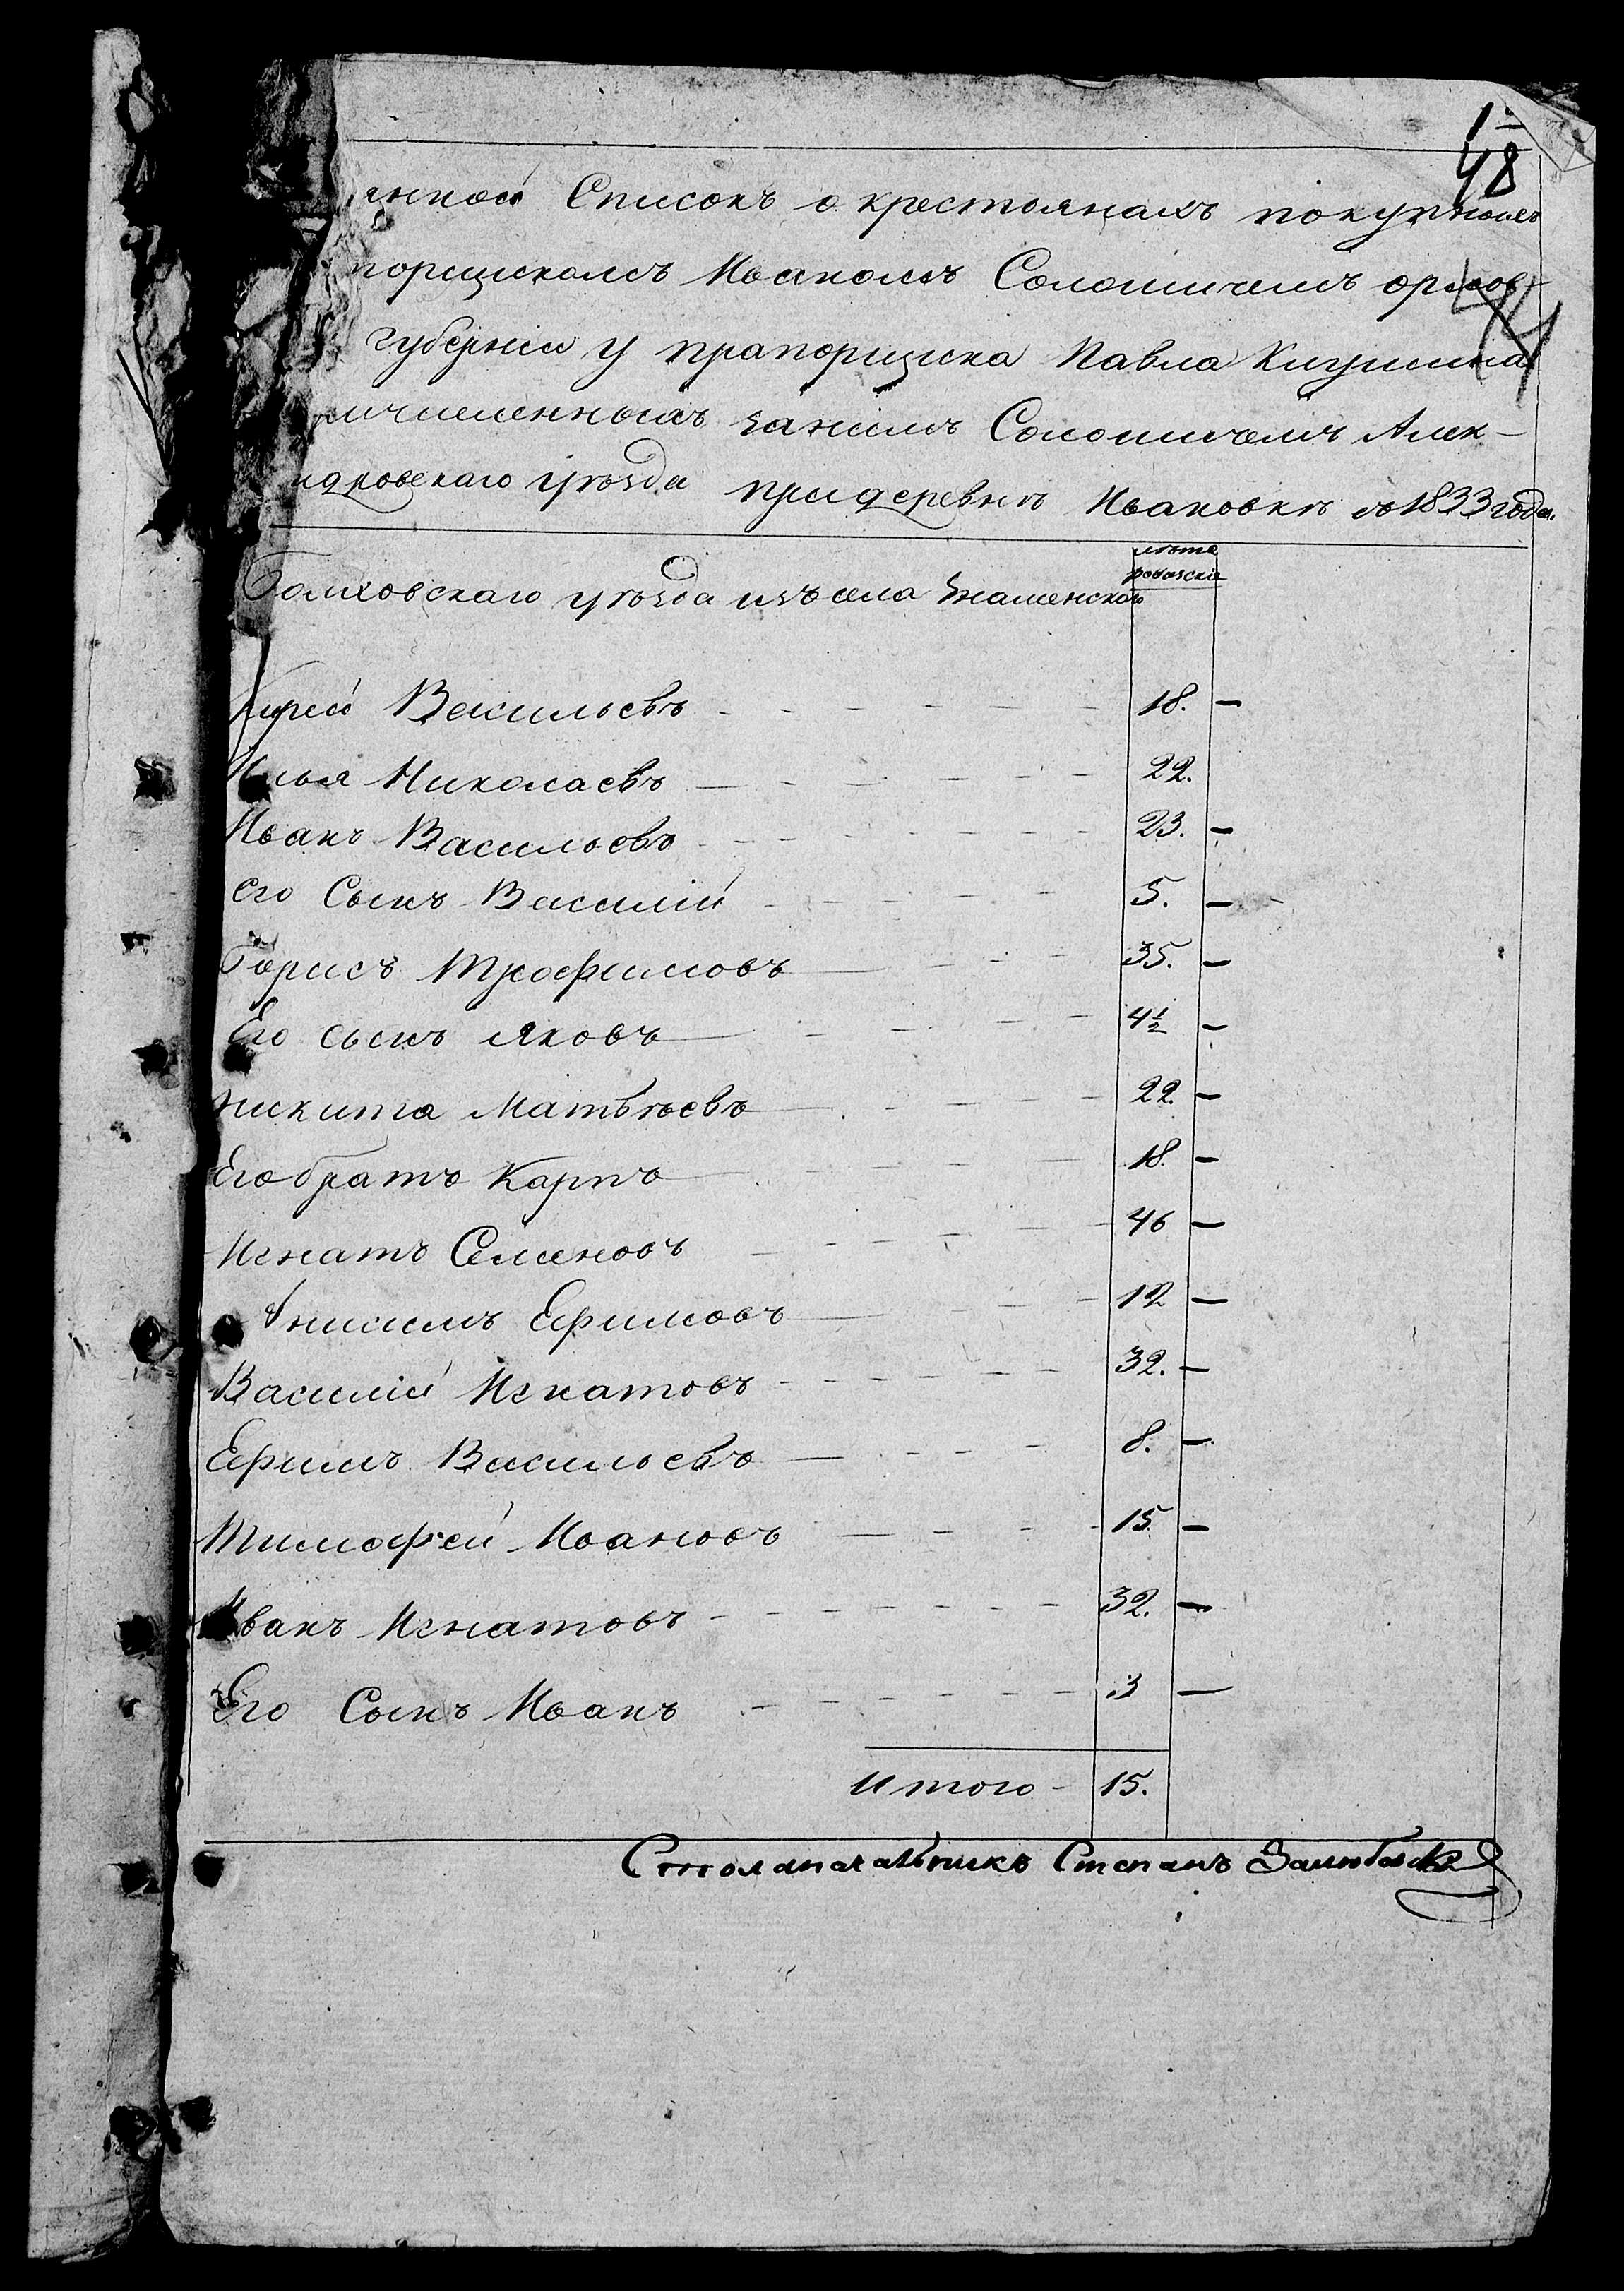 1
48
44
янной Списокъ о крестьянахъ покупныхъ
порщикомъ Иваномъ Соломичемъ орлов-
губерніи у прапорщика Павла
ичисленныхъ занимъ Соломичемъ Алек-
ндровскаго уѣзда придеревнѣ Ивановкѣ съ 1833 года.
лѣта
ревизскіе
Болховскаго уѣзда изъ села Знаменскаго
Кирей Васильевъ 18. —
Илья Николаевъ 22.
Иванъ Васильевъ 23. —
его Сынъ Василій 5. —
Борисъ Трофимовъ 35. —
Его сынъ Яковъ 4½ —
Никита Матвѣевъ 22. —
Его братъ Карпъ 18. —
Игнатъ Семеновъ 46 —
Анисимъ Ефимовъ 12 —
Василій Игнатовъ 32. —
Ефимъ Васильевъ 8. —
Тимофей Ивановъ 15. —
Иванъ Игнатовъ 32. —
Его Сынъ Иванъ 3 —
Итого - 15.
Столоначальникъ Степанъ